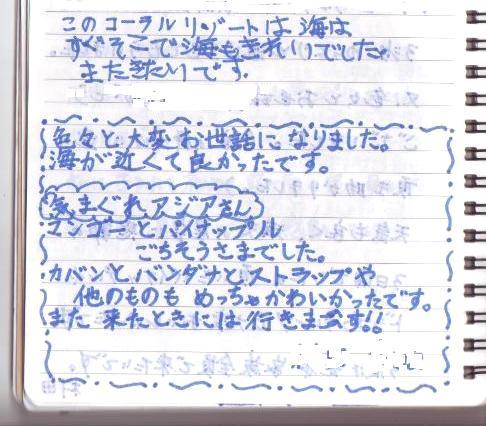 このコーラルリゾートは海は
すぐそこで海もきれいでした。
またきたいです。
色々と大変お世話になりました。
海が近くて良かったです。
気まぐれアジアさん
マンゴーとパイナップル
ごちそうさまでした。
カバンとバンダナとストラップや
他のものもめっちゃかわいかったです。
また来たときには行きます!!